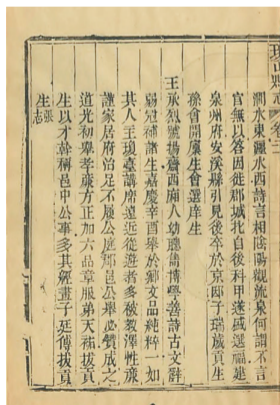 澗水東瀍水西詩言相陰陽觀流泉何謂不言
官無以答因徙郡城北自後科甲遂盛選福建
泉州府安溪縣引見後卒於京邸子瑞 貢生
孫會開廩生會選庠生
王承烈號揚齋西廂人幼聰雋博學善詩古文辭
弱冠補諸生嘉慶辛酉舉於鄉文品純粹一如
其人主瓊臺講席遠近從遊者多被教澤性廉
謹家居府治足不履公庭郡邑公舉必贊成之
道光初舉孝廉方正加六品章服弟天補拔貢
生以才幹稱邑中公事多其經畫子廷傳拔貢
生 張志